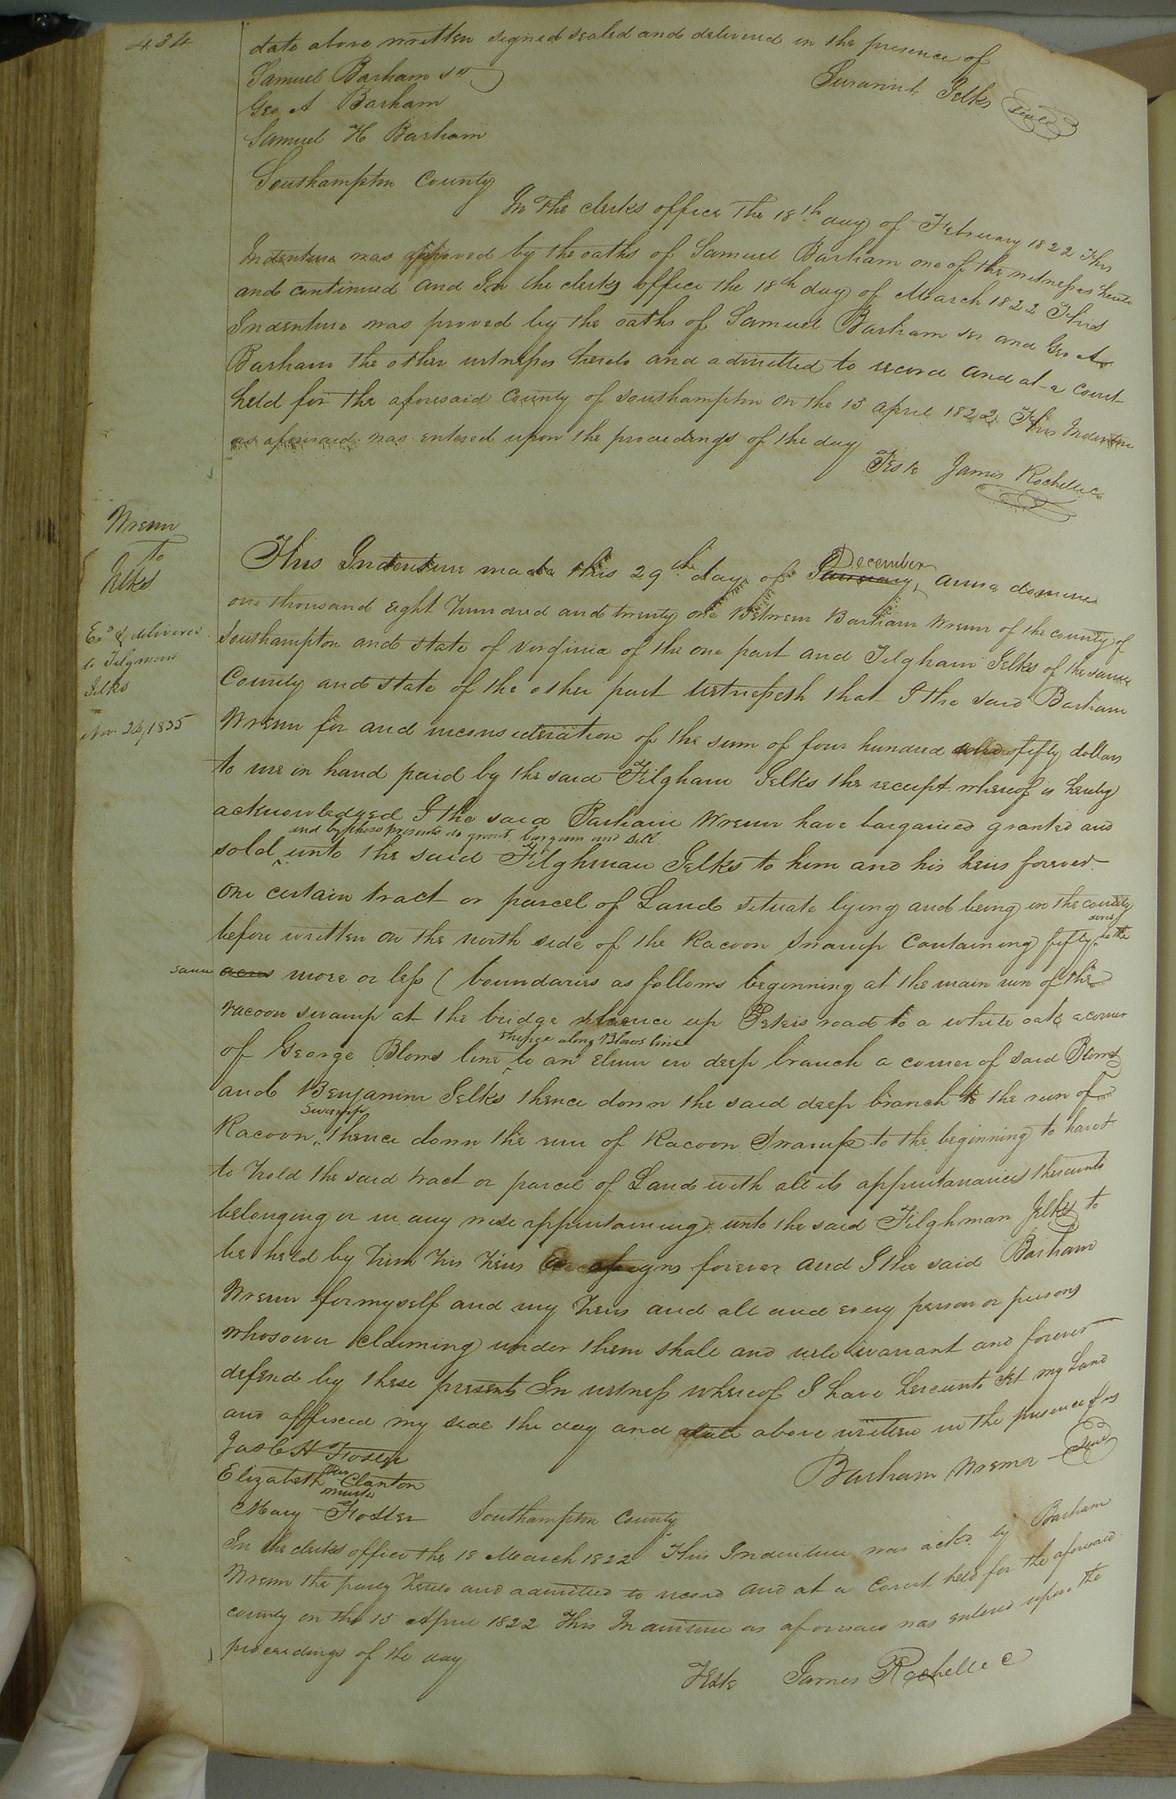 434
date above written signed sealed and delivered in the presence of
Samuel Barham sr
Susanna Jelks seal
Geo A Barham
Samuel H Barham
Southampton County
In The clerks office The 18th day of February 1822 This
Indenture was proved by the oaths of Samuel Barham one of the witnesses hereto
and continued and In the clerks office the 18th day of March 1822 This
Indenture was proved by the oaths of Samuel Barham sr and Geo A
Barham the other witness hereto and admitted to record and at a court
held for the aforesaid County of Southampton on the 15 april 1822 This Indenture
as aforesaid was entered upon the proceedings of the day
Teste James Rochelle C
Wrenn
to
Jelks
Exd & delivered
to Tilgman
Jelks
Nov 24, 1835
This Indenture made this 29th day of January December anno domini
one thousand eight hundred and twenty one Between Barham Wrenn of the county of
Southampton and state of virginia of the one part and Tilgham Jelks of the same
County and state of the other part witnesseth that I the said Barham
Wrenn for and inconsideration of the sum of four hundred and fifty dollars
to me in hand paid by the said Tilgham Jelks the receipt whereof is hereby
acknowledged I the said Barham Wrenn have bargained granted and
and by these presents do grant bargain and sell
sold unto the said Tilghman Jelks to him and his heirs forever
one certain tract or parcel of Land situate lying and being in the county
before written on the north side of the Racoon swamp Containing fifty acres be the
same acres more or less ( boundaries as follows beginning at the main run of the
racoon swamp at the bridge thence up road to a white oak a corner
of George Blows line thence along Blows line to an elum in deep branch a corner of said Blows
and Benjamin Jelks thence down the said deep branch to the run of
Racoon swamp thence down the run of Racoon Swamp to the beginning to have &
to hold the said tract or parcel of Land with all its appurtanances thereunto
belonging or in any wise appurtaining unto the said Tilghman Jelks to
be held by him his heirs or assigns forever and I the said Barham
Wrenn for myself and my heirs and all and every person or persons
whosoever claiming under them shall and will warrant and forever
defend by these presents In witness whereof I have hereunto set my hand
and affixed my seal the day and date above written in the presence of us
Barham Wrenn seal
Foster
Elizabeth her mark Clanton
Mary Foster Southampton County
In the clerks office the 18 March 1822 This Indenture was ackd by Barham
Wrenn the party hereto and admitted to record and at a Court held for the aforesaid
county on the 15 April 1822 This Indenture as aforesaid was entered upon the
proceedings of the day
Teste James Rochelle C